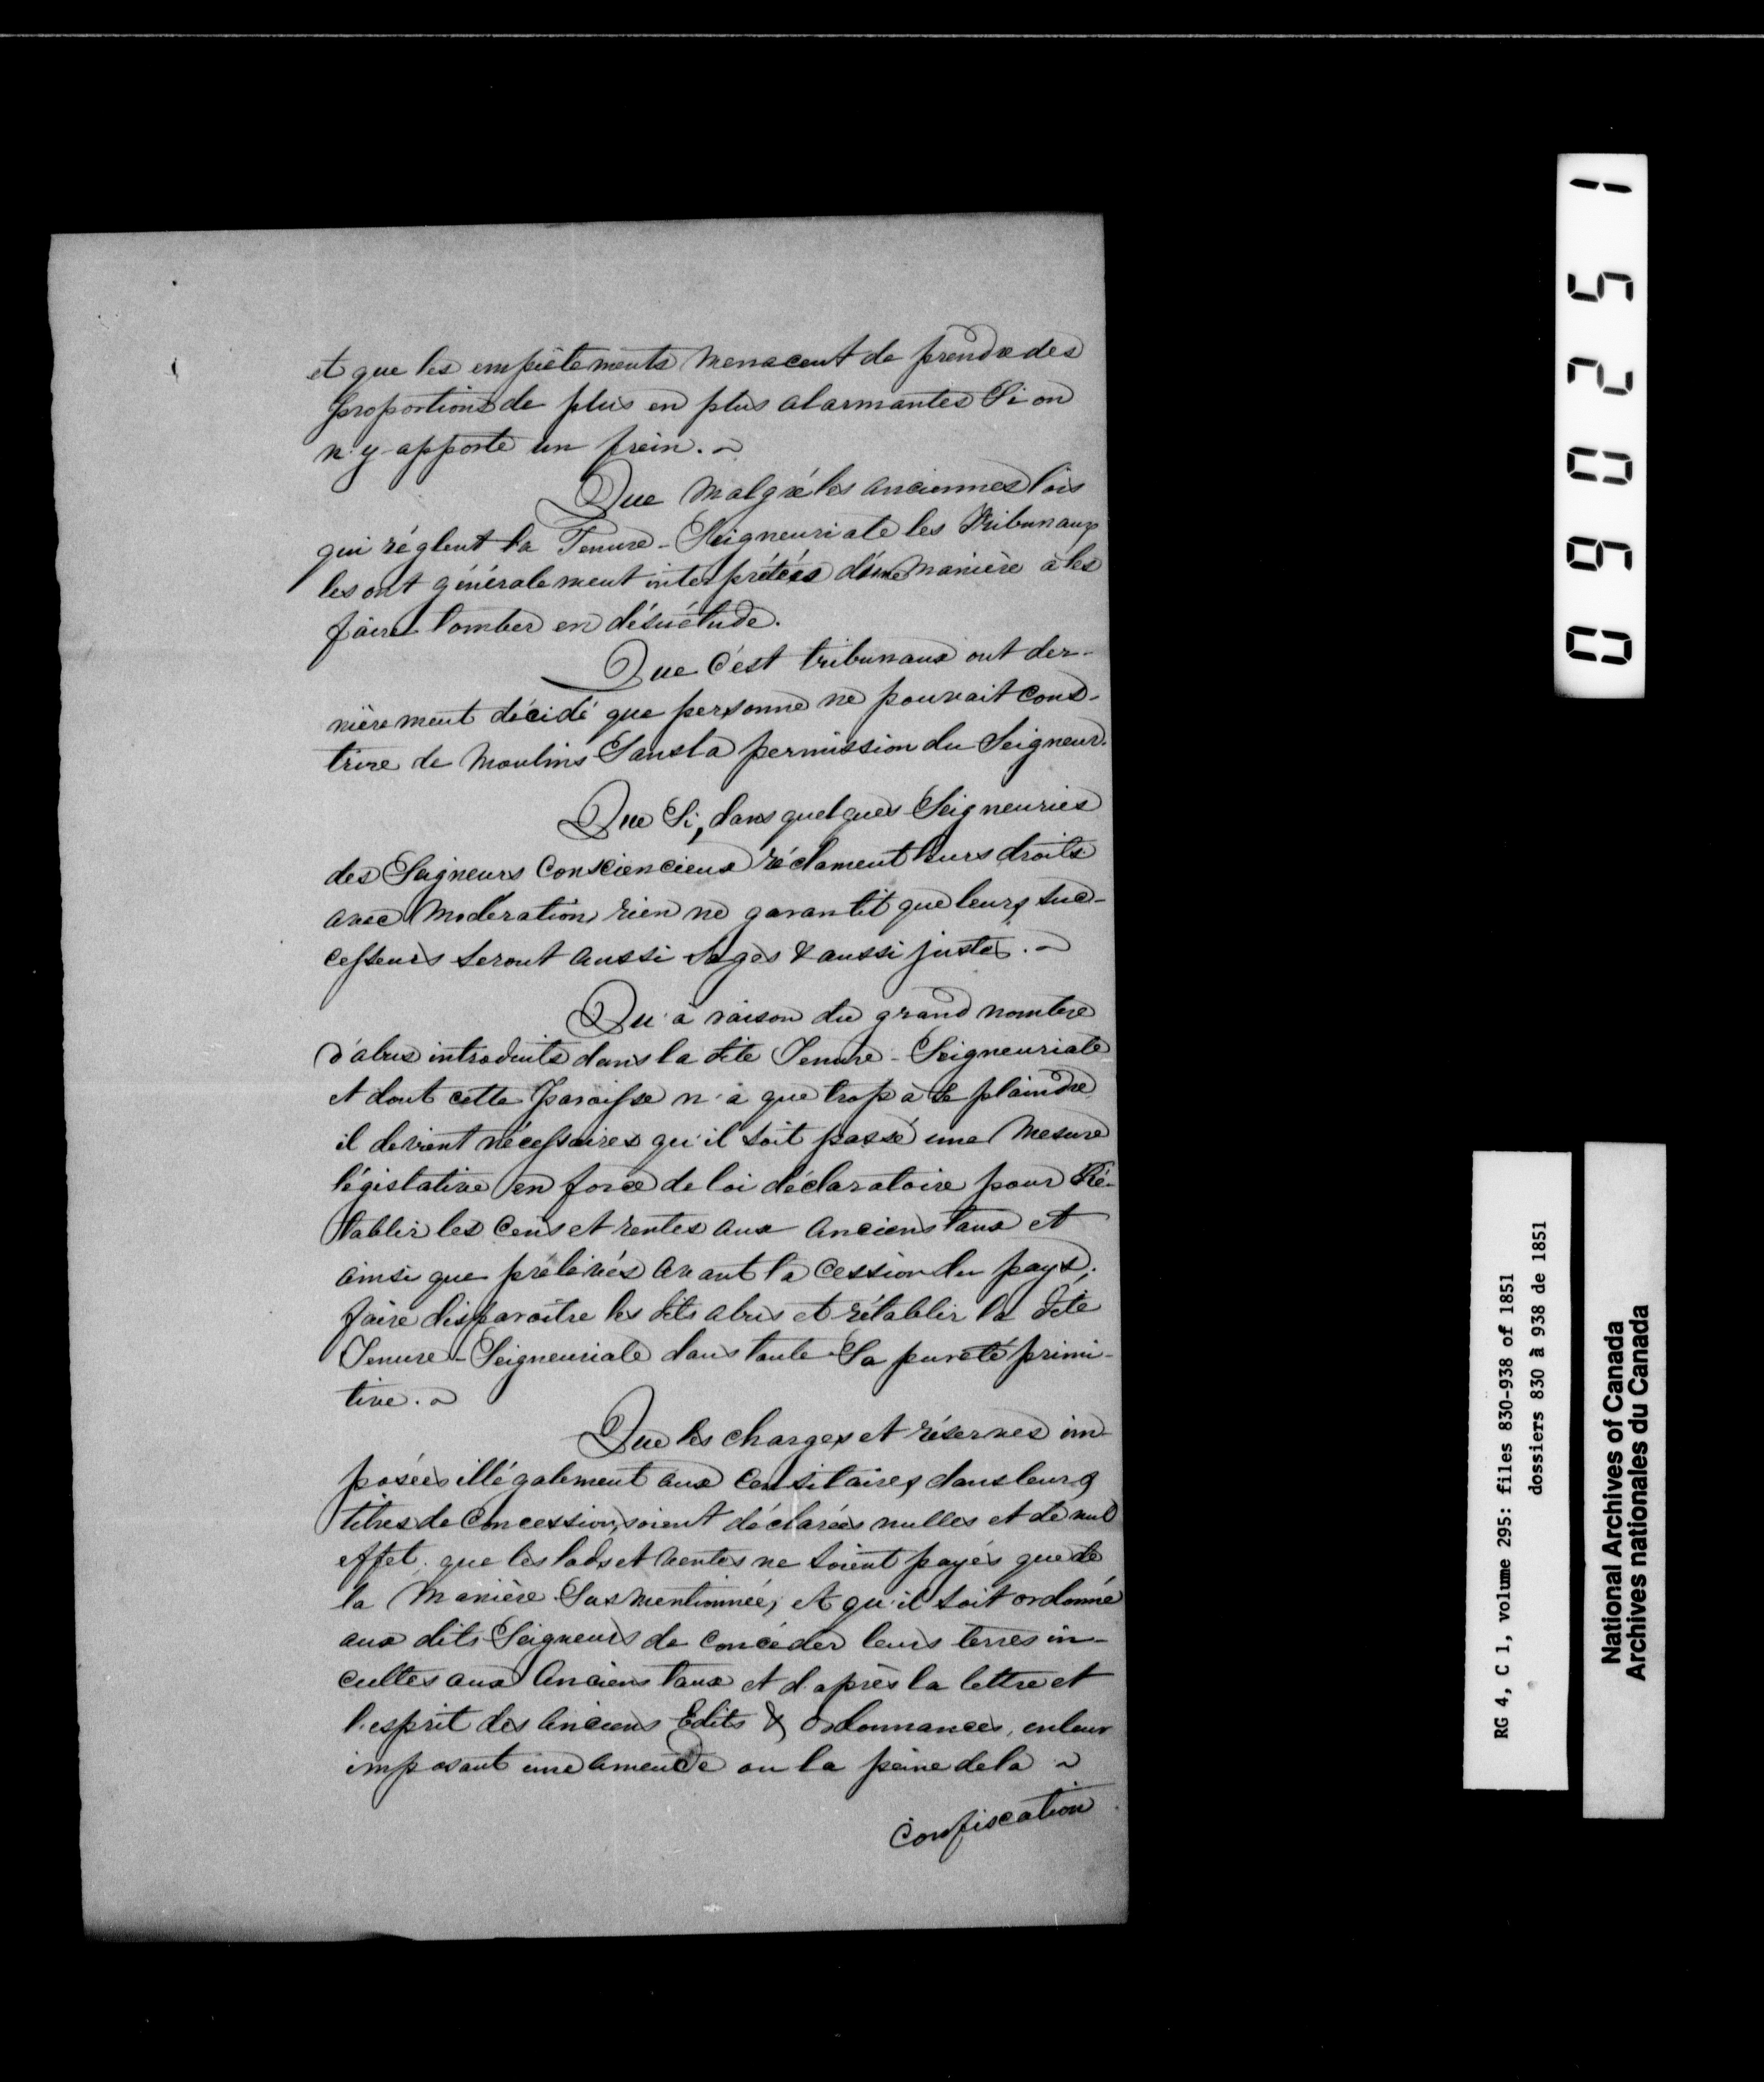 et que les empiètements menacent de prendre des
proportions de plus en plus alarmantes Si on
n'y apporte un frein.
Que malgré les anciennes lois
qui réglent la Tenure-Seigneuriale les Tribunaux
les ont généralement interprétées d'une manière à les
faire tomber en désuétude.
Que c'est tribunaux ont der-
nièrement décidé que personne ne pouvait cons-
trire de Moulins Sans la permission du Seigneur.
Que Si, dans quelques Seigneuries
des Seigneurs Consciencieux réclament leurs droits
avec modération, rien ne garantit que leurs suc-
cesseurs seront aussi sages & aussi justes.
Qu'à raison du grand nombre
d'abus introduits dans la dite Tenure-Seigneuriale
et dont cette Paroisse n'a que trop à se plaindre
il devient nécessaires qu'il soit passé une Mesure
législative en force de loi déclaratoire pour Ré-
tablir les Cens et rentes aux anciens taux et
ainsi que prélevés avant la Cession du pays;
faire disparaître les dits abus et rétablir la dite
Tenure-Seigneuriale dans toute Sa pureté primi-
tive.
Que les charges et réserves im-
posées illégalement aux Censitaires dans leurs
titres de Concession, soient déclarées nulles et de nul
effet; que les lods et ventes ne soient payés que de
la Manière Susmentionnée; et qu'il soit ordonné
aux dits Seigneurs de concéder leurs terres in-
cultes aux Anciens taux et d'après la lettre et
l'esprit des Anciens Edits & Ordonnances, en leur
imposant une amende ou la peine de la
Confiscation
090251
RG 4, C 1, volume 295: files 830-938 of 1851
dossiers 830 à 938 de 1851
National Archives of Canada
Archives nationales du Canada